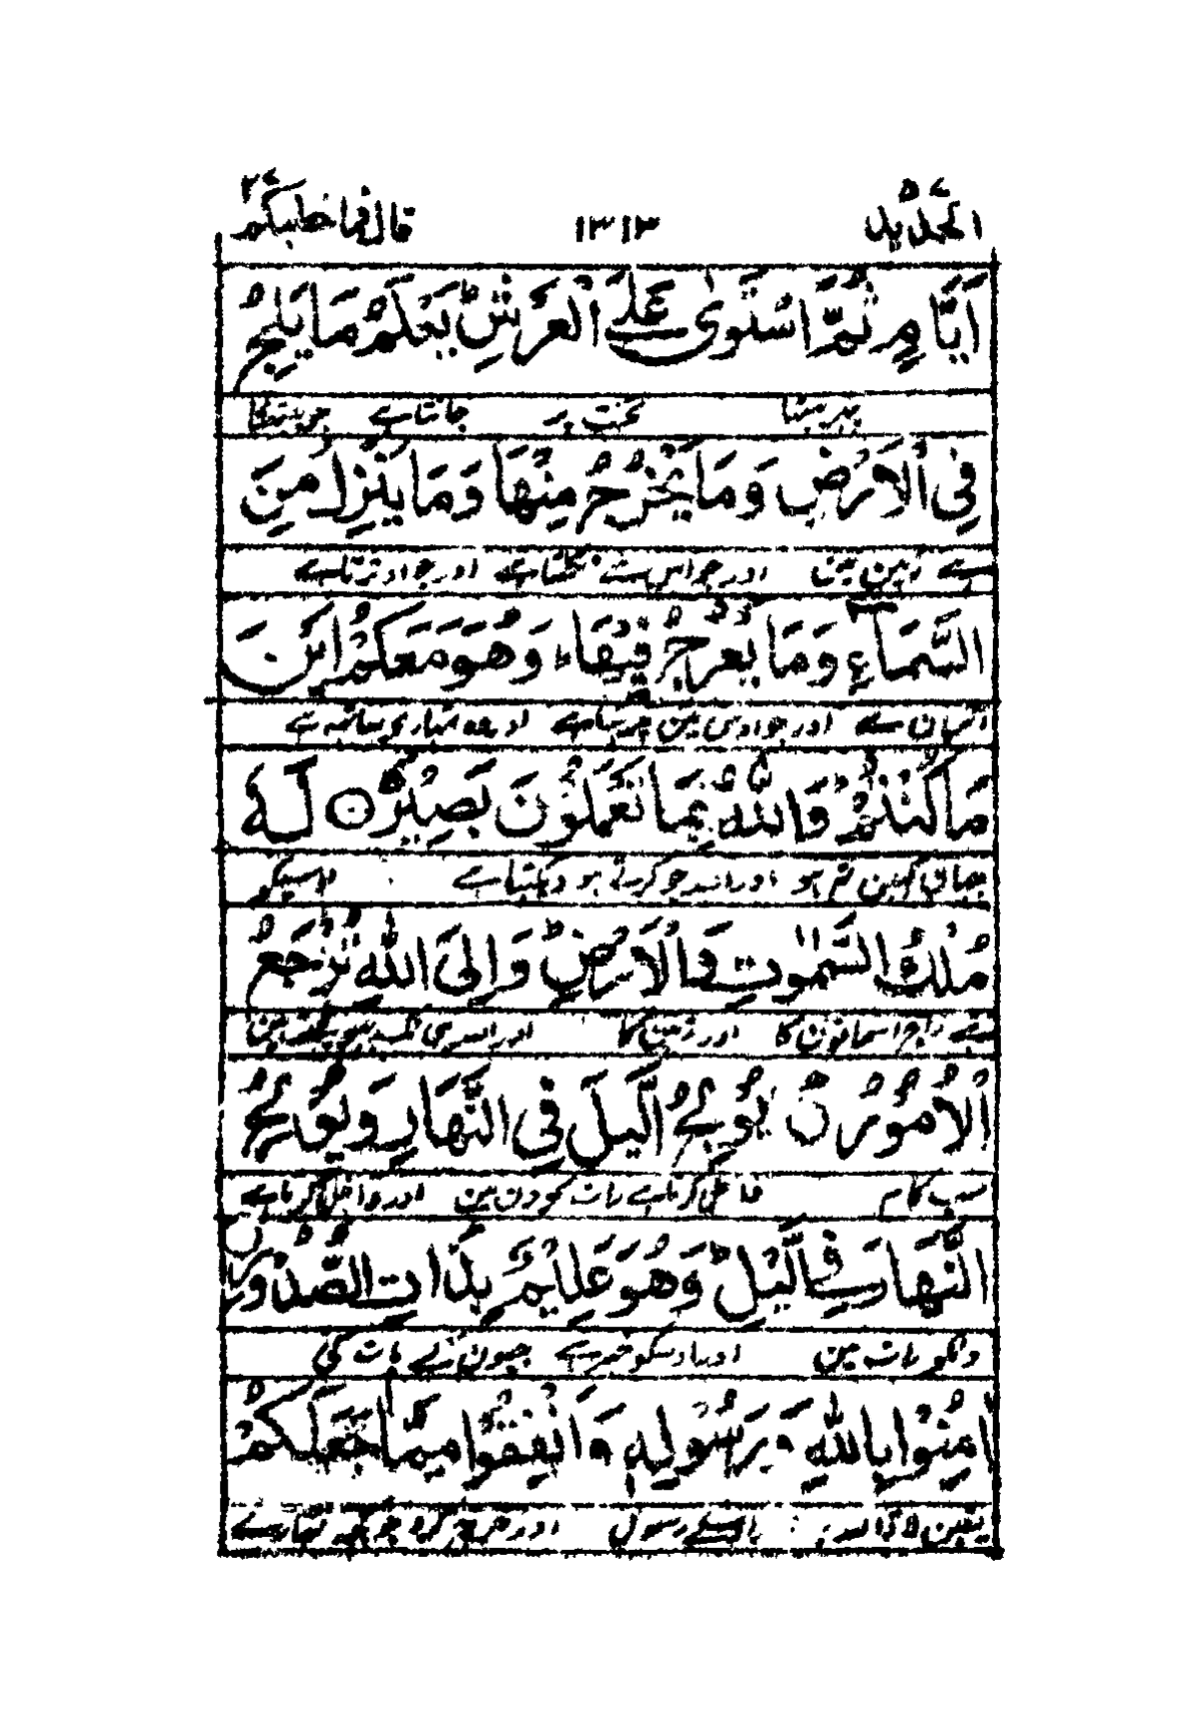 الحدید ۵۷ ۱۳۱۳ قال فما خطبکم ۲۷
اَیَّامٍ ثُمَّ اسْتَوٰی عَلَی الْعَرْشِ ؕ یَعْلَمُ مَا یَلِجُ
پھر بیٹھا تخت پر جانتا ہے جو پیٹھتا
فِی الْاَرْضِ وَمَا یَخْرُجُ مِنْهَا وَمَا یَنْزِلُ مِنَ
ہے زمین مین اور جو اس سے نکلتا ہے اور جو اوترتا ہے
السَّمَآءِ وَمَا یَعْرُجُ فِیْهَا ؕ وَهُوَ مَعَکُمْ اَیْنَ
آسمان سے اور جو اوس مین چڑہتا ہے اور وہ تمہاری ساتھ ہے
مَا کُنْتُمْ ؕ وَاللّٰهُ بِمَا تَعْمَلُوْنَ بَصِیْرٌ ۝ لَهٗ
جہان کہین تم ہو اور اللہ جو کرتے ہو دیکہتا ہے اسیکو
مُلْكُ السَّمٰوٰتِ وَالْاَرْضِ ؕ وَاِلَی اللّٰهِ تُرْجَعُ
ہے راج اسمانون کا اور زمین کا اور اللہ ہی تک پہونچتے ہین
الْاُمُوْرُ ۝ یُوْلِجُ الَّیْلَ فِی النَّهَارِ وَیُوْلِجُ
سب کام داخل کرتا ہے رات کو دن مین اور داخل کرتا ہے
النَّهَارَ فِی الَّیْلِ ؕ وَهُوَ عَلِیْمٌ ۢ بِذَاتِ الصُّدُوْرِ ۝
دنکو رات مین اور اوسکو خبر ہے جیون کے بات کی
اٰمِنُوْا بِاللّٰهِ وَرَسُوْلِهٖ وَاَنْفِقُوْا مِمَّا جَعَلَکُمْ
یقین لاؤ اللہ پر اور اسکے رسول اور خرچ کرو جو کچہ تمہارے